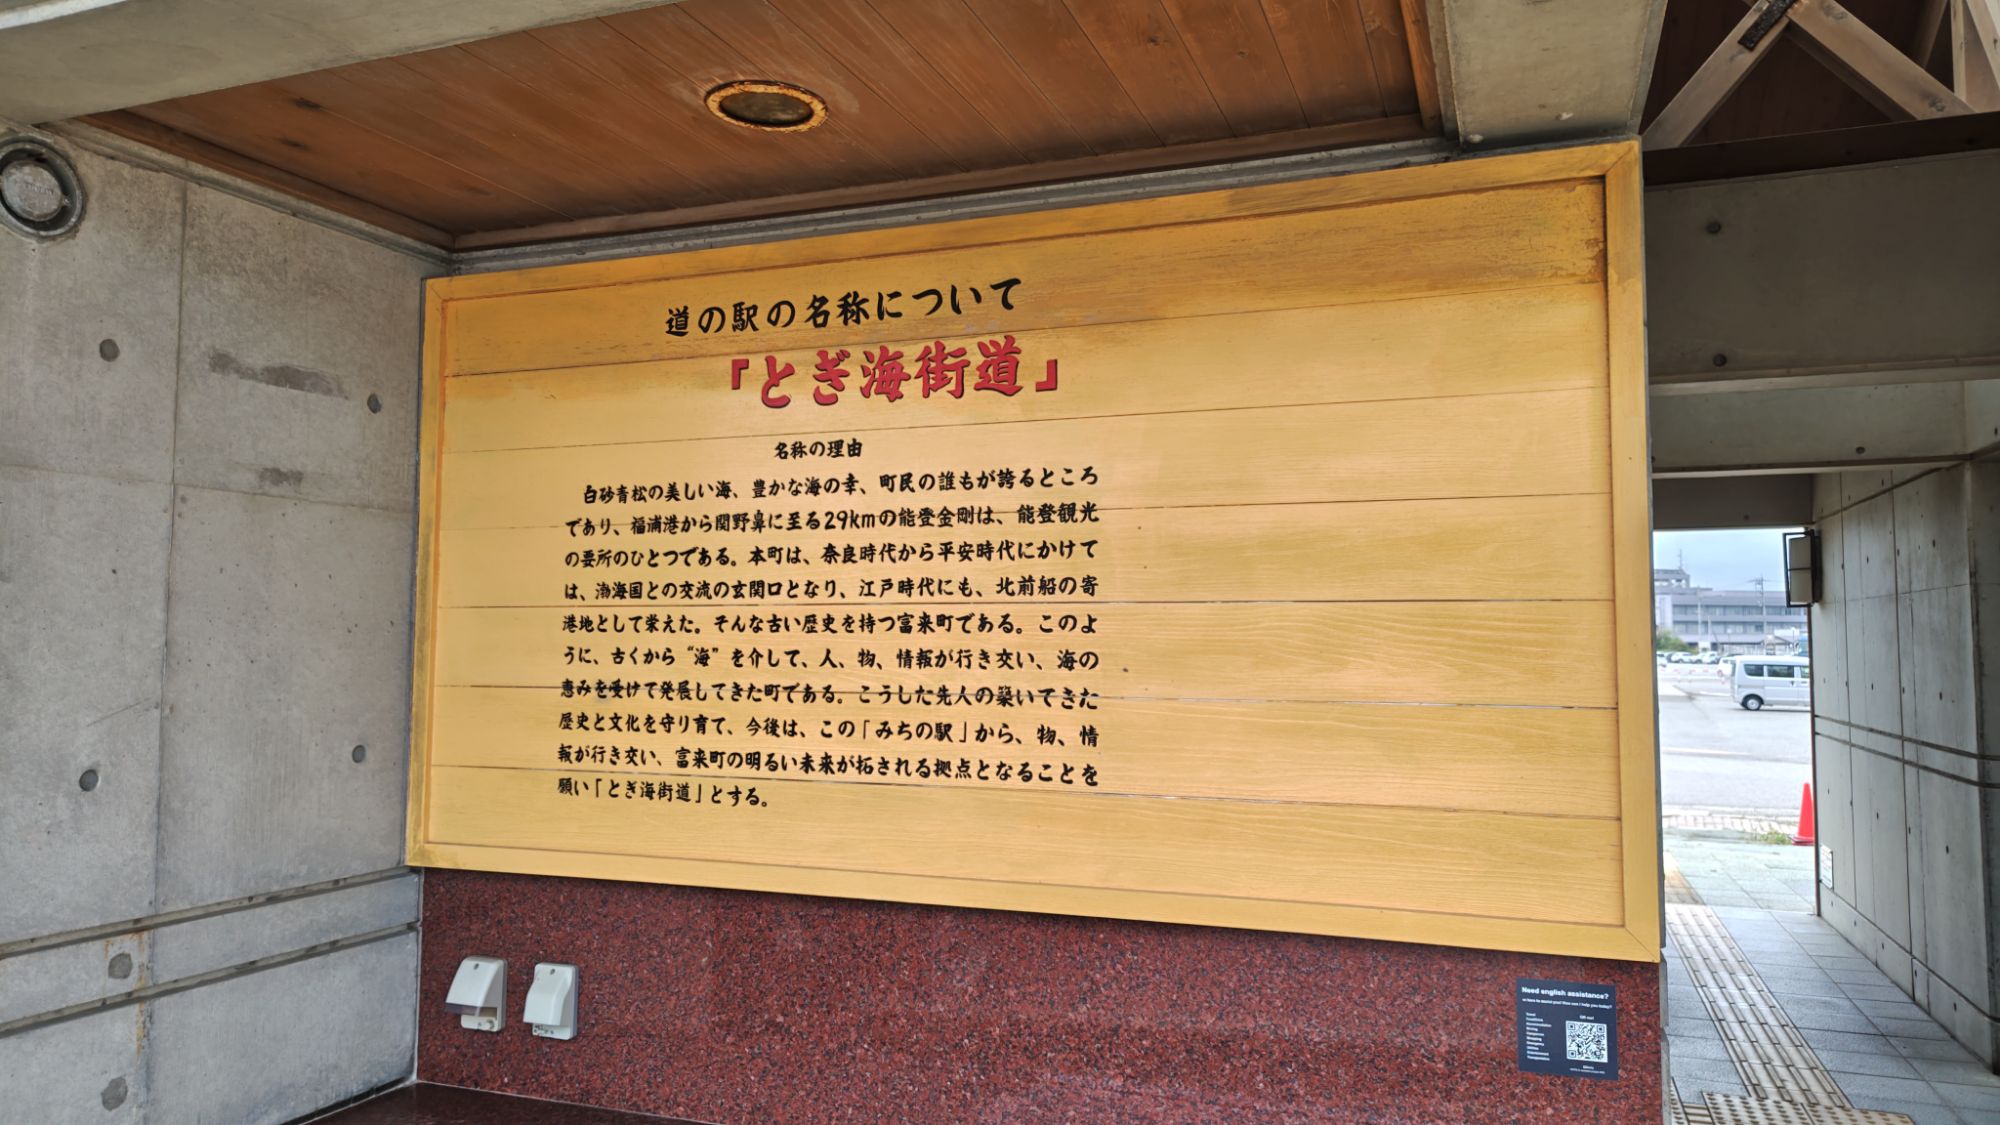 道の駅の名称について
「とぎ海街道」
名称の理由
白砂青松の美しい海、豊かな海の幸、町民の誰もが誇るところ
であり、福浦港から関野鼻に至る29kmの能登金剛は、能登観光
の要所のひとつである。本町は、奈良時代から平安時代にかけて
は、渤海国との交流の玄関口となり、江戸時代にも、北前船の寄
港地として栄えた。そんな古い歴史を持つ富来町である。このよ
うに、古くから“海”を介して、人、物、情報が行き交い、海の
恵みを受けて発展してきた町である。こうした先人の築いてきた
歴史と文化を守り育て、今後は、この「みちの駅」から、物、情
報が行き交い、富来町の明るい未来が拓される拠点となることを
願い「とぎ海街道」とする。
Need english assistance?